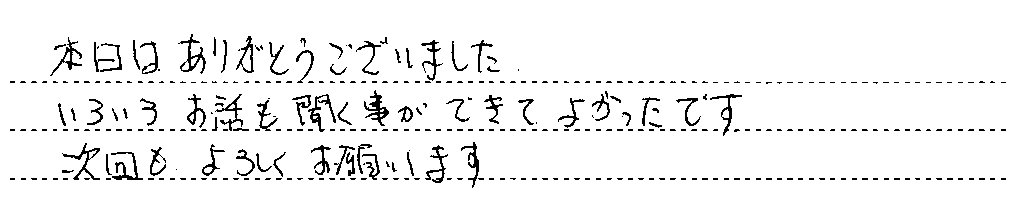 本日はありがとうございました
いろいろお話も聞く事ができてよかったです
次回もよろしくお願いします